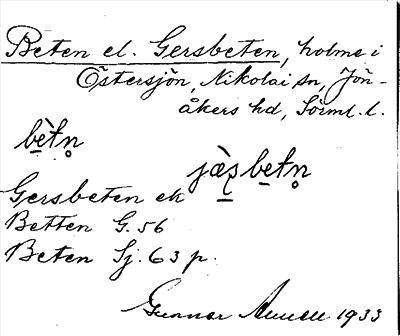 Beten el. Gersbeten, holme i
Östersjön, Nikolai sn, Jön-
åkers hd, Sörml. l.
bètn̥
jæ̀ʂbetn̥
Gersbeten ek
Betten G. 56
Beten Sj. 63 p.
Gunnar 1933